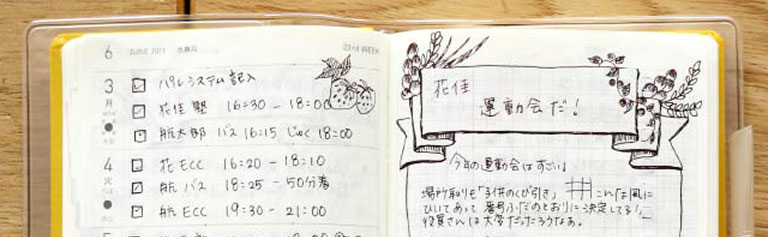 6 JUNE 2019 水無月
23rd WEEK
3 月
パルシステム記入
花佳 塾 16:30 - 18:00
航太郎 バス 16:15 じゅく 18:00
4 火
花 ECC 16:20 - 18:10
航 バス 18:25 - 50分着
航 ECC 19:30 - 21:00
5
花佳
運動会だ!
今年の運動会はすごい!
場所取りも「子供のくじ引き」 これは風に
ひいてあって 番号ふだのとおりに決定してる!
役員さんは大変だっただろうなあ。